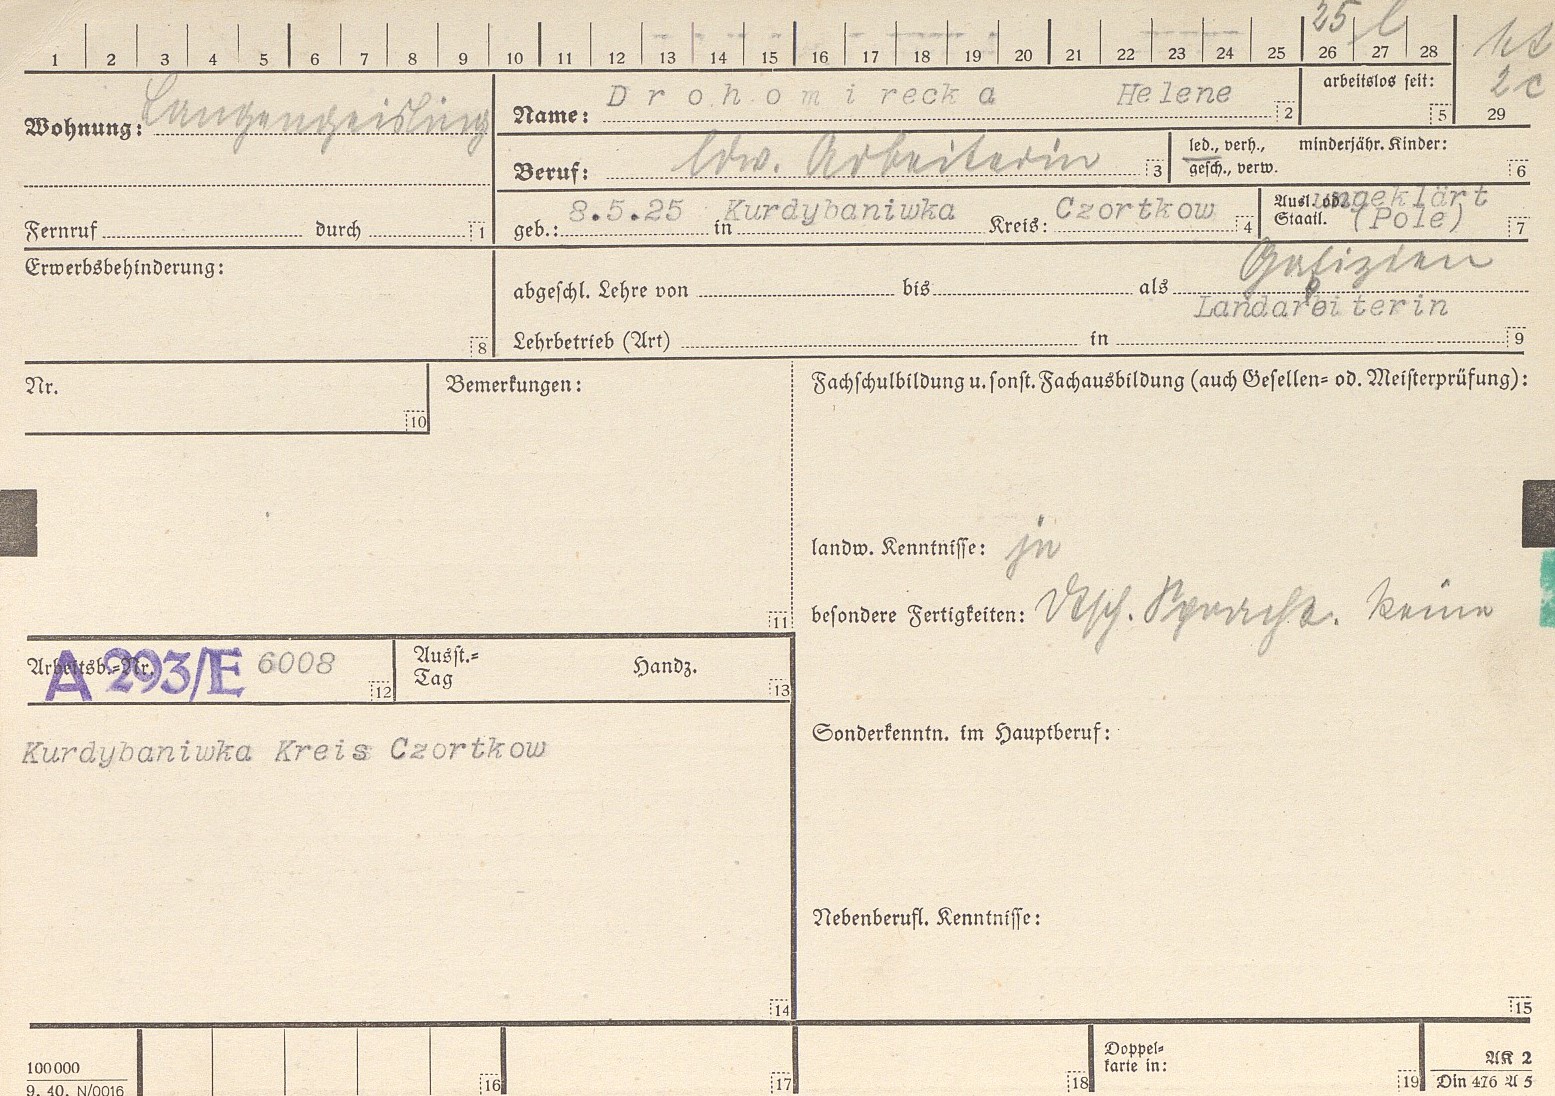 25 l
1 2 3 4 5 6 7 8 9 10 11 12 13 14 15 16 17 18 19 20 21 22 23 24 25 26 27 28
2c
29
Wohnung: Langengeisling
Name: Drohomirecka Helene 2
arbeitslos seit:
5
Beruf: ldw. Arbeiterin 3
led., verh., minderjähr. Kinder:
gesch., verw. 6
Fernruf durch 1
geb.: 8.5.25 in Kurdybaniwka Kreis: Czortkow 4
Ausl. od. ungeklärt
Staatl. (Pole) 7
Erwerbsbehinderung:
8
Galizien
abgeschl. Lehre von bis als
Landarbeiterin
Lehrbetrieb (Art) in 9
Nr.
10
Bemerkungen:
11
Fachschulbildung u. sonst. Fachausbildung (auch Gesellen= od. Meisterprüfung):
landw. Kenntnisse: ja
besondere Fertigkeiten: Dtsch. Sprachk. keine
Arbeitsb.=Nr. A 293/E 6008 12
Ausst.=
Tag
Handz.
13
Kurdybaniwka Kreis Czortkow
14
Sonderkenntn. im Hauptberuf:
Nebenberufl. Kenntnisse:
15
100000
9. 40. N/0016
16
17
18
Doppel=
karte in:
19
AK 2
Din 476 A 5